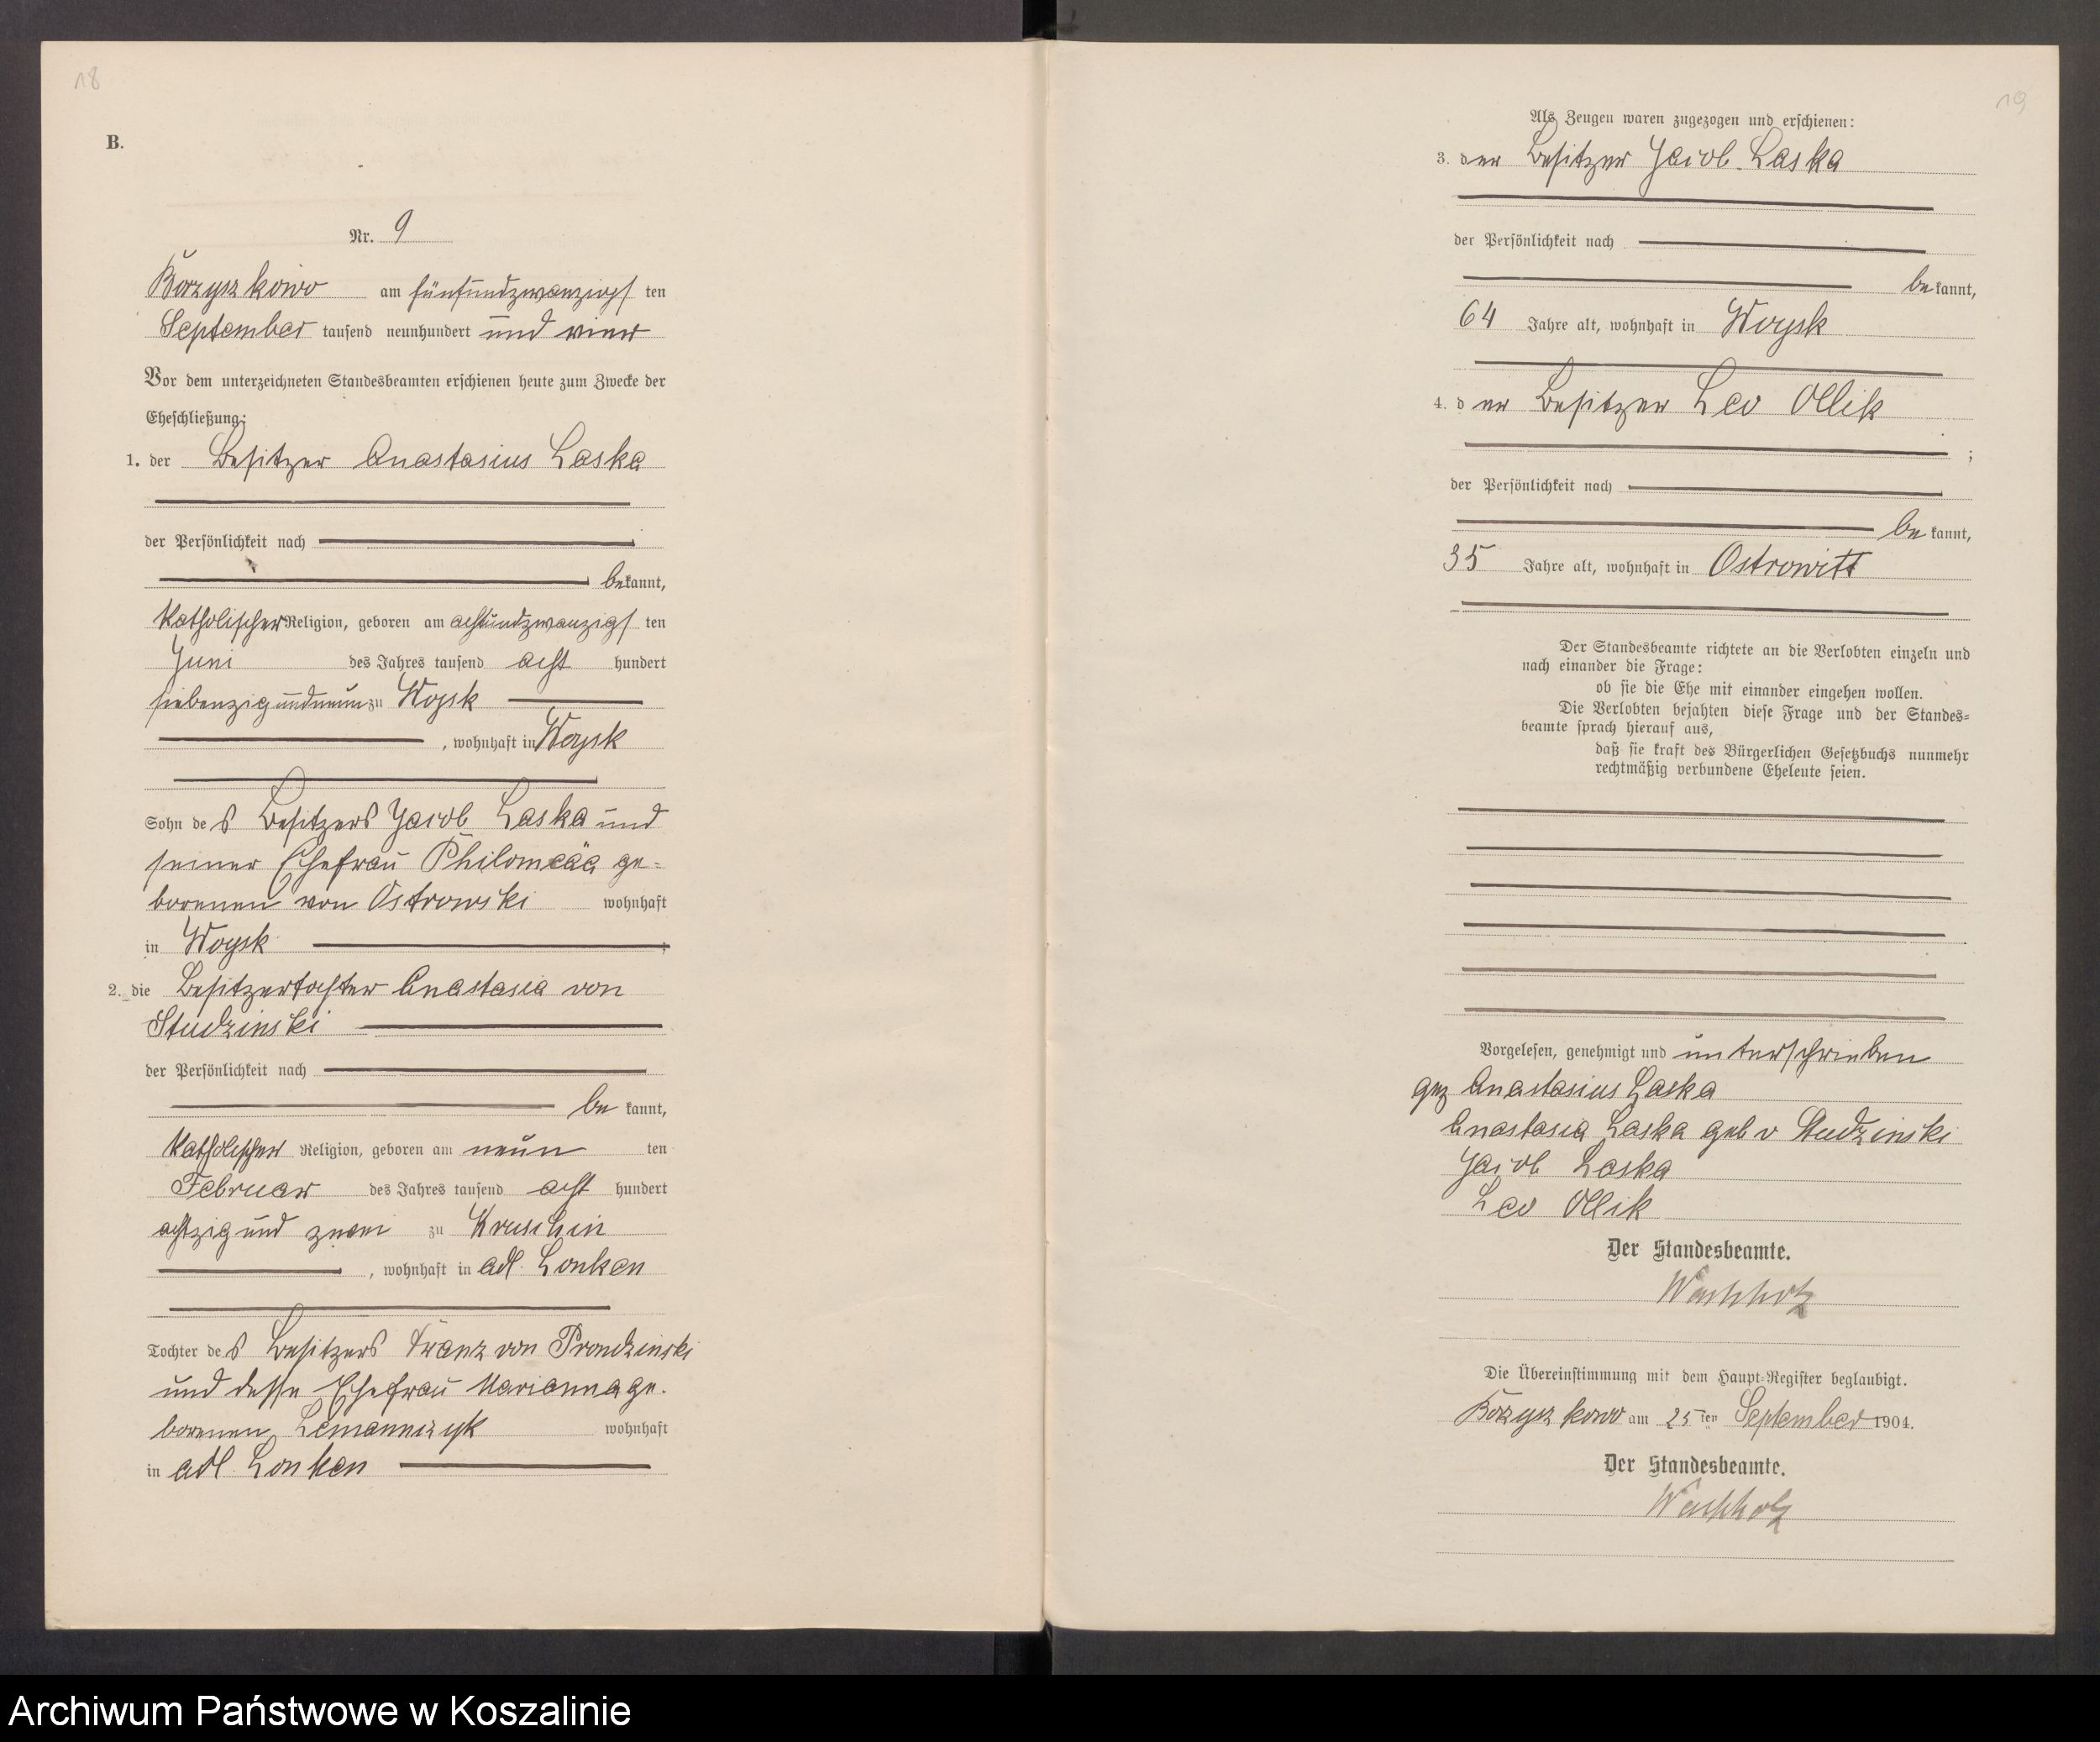 18
B.
Nr. 9
Borzyszkowo am fünfundzwanzigs ten
September tausend neunhundert und vier
Vor dem unterzeichneten Standesbeamten erschienen heute zum Zwecke der
Eheschließung:
1. der Besitzer Anastasius Laska
der Persönlichkeit nach
bekannt,
katholischer Religion, geboren am achtundzwanzigs ten
Juni des Jahres tausend acht hundert
siebenzigundneun zu Woysk
, wohnhaft in Woysk
Sohn des Besitzers Jacob Laska und
seiner Ehefrau ge=
borenen von Ostrowski wohnhaft
in Woysk ;
2. die Besitzertochter Anastasia von
Studzinski
der Persönlichkeit nach
be kannt,
katholischer Religion, geboren am neun ten
Februar des Jahres tausend acht hundert
achtzig und zwei zu Kruschin
, wohnhaft in adl. Lonken
Tochter des Besitzers Franz von Prondzinski
und desse Ehefrau Marianna ge.
borenen Lemannizyk wohnhaft
in adl. Lonken
19
Als Zeugen waren zugezogen und erschienen:
3. der Besitzer Jacob Laska
der Persönlichkeit nach
be kannt,
64 Jahre alt, wohnhaft in Woysk
4. der Besitzer Leo Ollik
;
der Persönlichkeit nach
be kannt,
35 Jahre alt, wohnhaft in Ostrowitt
Der Standesbeamte richtete an die Verlobten einzeln und
nach einander die Frage:
ob sie die Ehe mit einander eingehen wollen.
Die Verlobten bejahten diese Frage und der Standes=
beamte sprach hierauf aus,
daß sie kraft des Bürgerlichen Gesetzbuchs nunmehr
rechtmäßig verbundene Eheleute seien.
Vorgelesen, genehmigt und unterschrieben
gez Anastasius Laska
Anastasia Laska geb v Studzinski
Jacob Laska
Leo Ollik
Der Standesbeamte.
Wachholz
Die Übereinstimmung mit dem Haupt=Register beglaubigt.
Borzyszkowo am 25ten September 1904.
Der Standesbeamte.
Wachholz
Archiwum Państwowe w Koszalinie